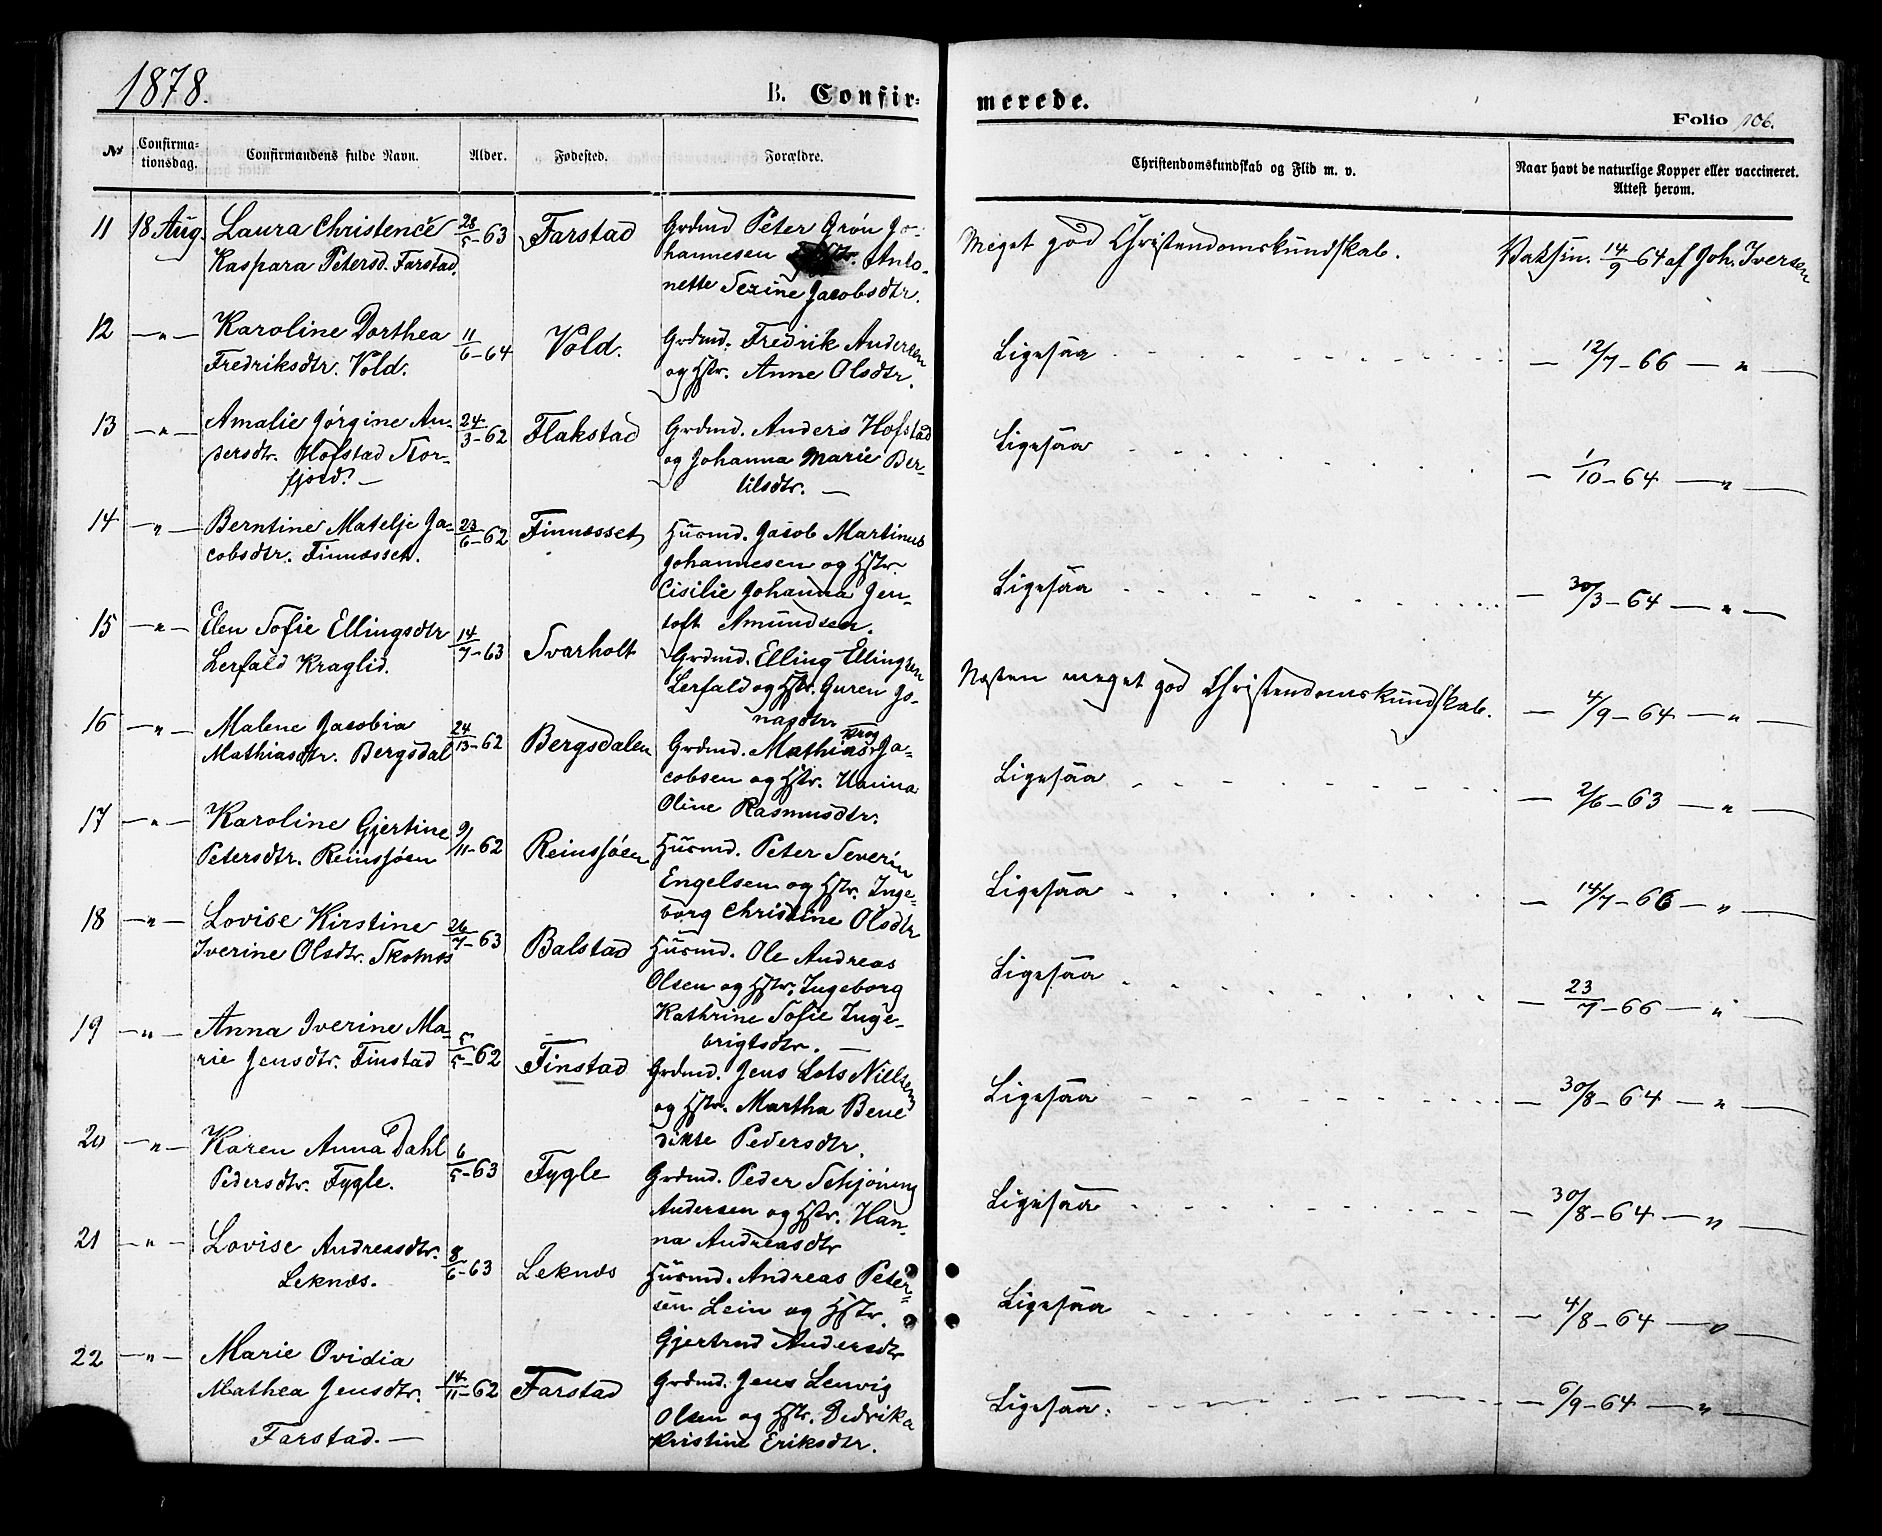 1878.
B. Confir-
merede.
Folio 106.
No
Confirma-
tionsdag.
Confirmandens fulde Navn.
Alder.
Fødested.
Forældre.
Christendomskundskab og Flid m. v.
Naar havt de naturlige Kopper eller vaccineret.
Attest herom.
11 18 Aug. Laura Christence 28/5-63 Farstad Grdmd Peter Grøn Jo-
Kaspara Petersd. Farstad. hannesen Anto-
nette Serine Jacobsdtr.
Meget god Christendomskundskab. Vaksin. 14/9-64 af Joh. Iversen
12 —„— Karoline Dorthea 11/6-64 Vold. Grdmd. Fredrik Andersen
Fredriksdtr. Vold. og Hstr. Anne Olsdtr.
Ligesaa — 12/7-66 — „ —
13 —„— Amalie Jørgine An- 24/3-62 Flakstad Grdmd. Anders Hofstad
dersdtr. Hofstad Stor- og Johanna Marie Ber-
fjord. — tilsdtr. —
Ligesaa — 1/10-64 — „ —
14 —„— Berntine Matelje Ja- 23/6-62 Finnæsset Husmd. Jacob Martinus
cobsdtr. Finnæsset. Johannesen og Hstr.
Cisilie Johanna Jen-
toft Amundsen.
Ligesaa — 30/3-64 — „ —
15 —„— Elen Sofie Ellingsdtr 14/7-63 Svarholt Grdmd. Elling Ellingsen
Lerfald Kraglid. Lerfald og Hstr. Guren Jo-
nasdtr
Næsten meget god Christendomskundskab. — 4/9-64 — „ —
16 —„— Malene Jacobia 24/13-62 Bergsdalen Grdmd. Mathias Ja-
Mathiasdtr. Bergsdal cobsen og Hstr. Hanna
Oline Rasmusdtr.
Ligesaa — 2/6-63 — „ —
17 —„— Karoline Gjertine 9/11-62 Reinsjøen Husmd. Peter Severin
Petersdtr. Reinsjøen Engelsen og Hstr. Inge-
borg Christine Olsdtr
Ligesaa — 14/7-66 — „ —
18 —„— Lovise Kirstine 26/7-63 Balstad Husmd. Ole Andreas
Iverine Olsdtr. Skotnes Olsen og Hstr. Ingeborg
Kathrine Sofie Inge-
brigtsdtr. —
Ligesaa — 23/7-66 — „ —
19 —„— Anna Iverine Ma- 5/5-62 Finstad Grdmd. Jens Lots Nillsen
rie Jensdtr. Finstad og Hstr. Martha Bene
dikte Pedersdtr.
Ligesaa — 30/8-64 — „ —
20 —„— Karen Anna Dahl 6/5-63 Fygle Grdmd. Peder Schjøning
Pedersdtr. Fygle. Andersen og Hstr. Han-
na Andreasdtr
Ligesaa — 30/8-64 — „ —
21 —„— Lovise Andreasdtr. 8/6-63 Leknes Husmd. Andreas Peter-
Leknes. sen Lein og Hstr.
Gjertrud Andersdtr
Ligesaa — 4/8-64 — „ —
22 —„— Marie Ovidia
Mathea Jensdtr. 14/11-62 Farstad Grdmd. Jens Lenvig
Farstad. — Olsen og Hstr. Dedrika
Kristine Eriksdtr.
Ligesaa — 6/9-64 — „ —